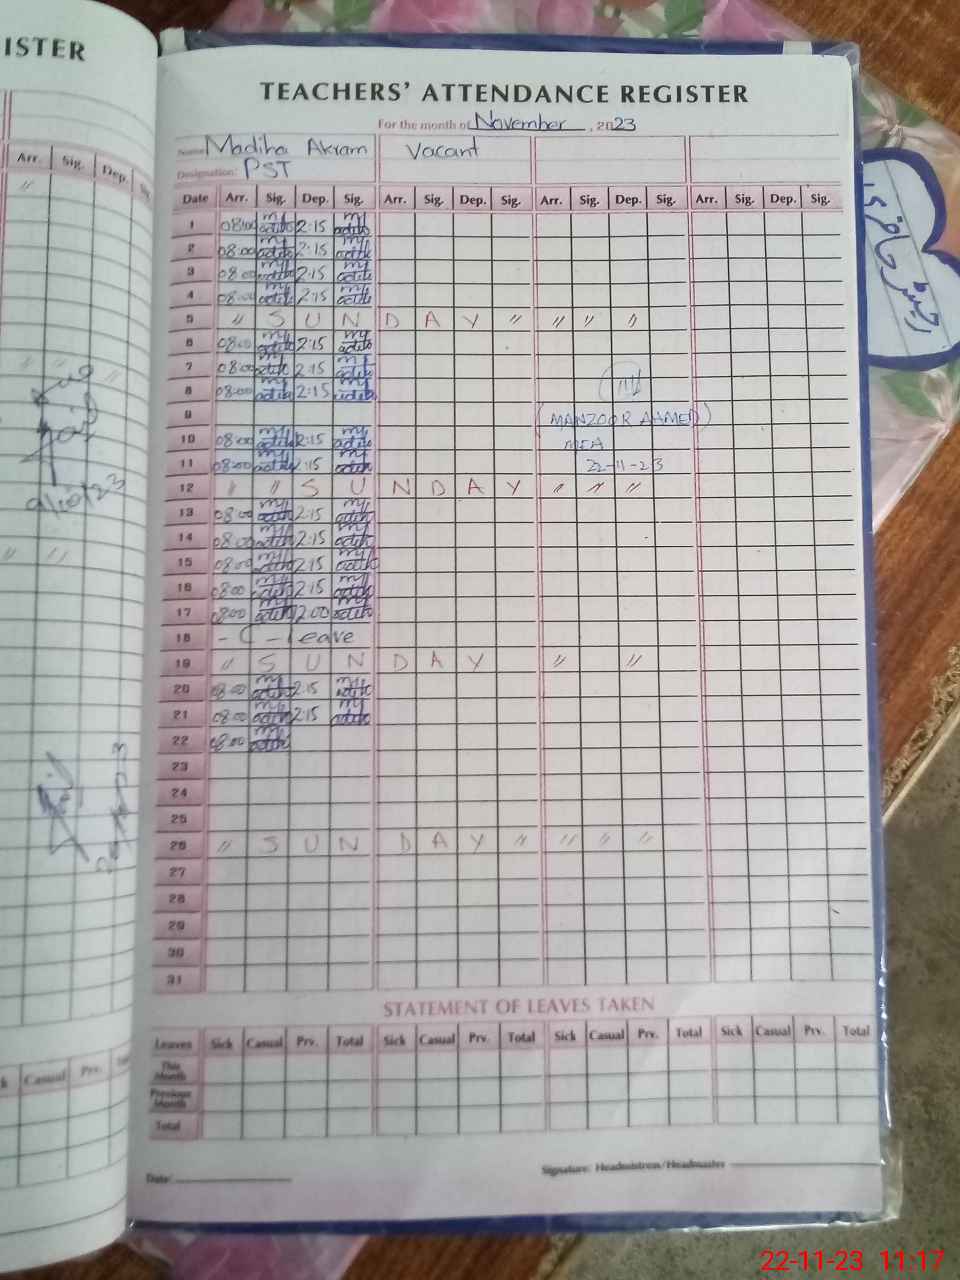 ISTER
Arr. Sig. Dep.
TEACHERS' ATTENDANCE REGISTER
For the month of November, 2023
Name Madiha Akram Vacant
Designation: PST
Date Arr. Sig. Dep. Sig. Arr. Sig. Dep. Sig. Arr. Sig. Dep. Sig. Arr. Sig. Dep. Sig.
1 08:00 2:15
2 08:00 2:15
3 08:00 2:15
4 08:00 2:15
5 〃 S U N D A Y 〃 〃 〃 〃
6 08:00 2:15
7 08:00 2:15
8 08:00 2:15
9 (MANZOOR AHMED)
10 08:00 2:15 MEA
11 08:00 2:15 22-11-23
12 〃 〃 S U N D A Y 〃 〃 〃
13 08:00 2:15
14 08:00 2:15
15 08:00 2:15
16 08:00 2:15
17 08:00 2:00
18 - C - leave
19 〃 S U N D A Y 〃 〃
20 08:00 2:15
21 08:00 2:15
22 08:00
23
24
25
26 〃 S U N D A Y 〃 〃 〃 〃
27
28
29
30
31
STATEMENT OF LEAVES TAKEN
Leaves Sick Casual Prv. Total Sick Casual Prv. Total Sick Casual Prv. Total Sick Casual Prv. Total
This Month
Previous Month
Total
Casual Prv.
Signature: Headmistress/Headmaster
Date:
22-11-23 11:17